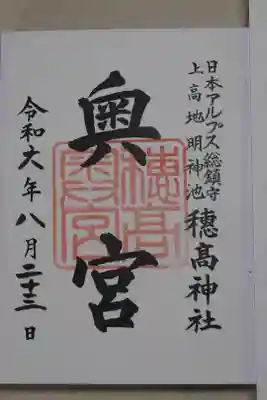 日本アルプス総鎮守
上高地明神池
穂髙神社
奥宮
令和六年八月二十三日
穂髙
奥宮